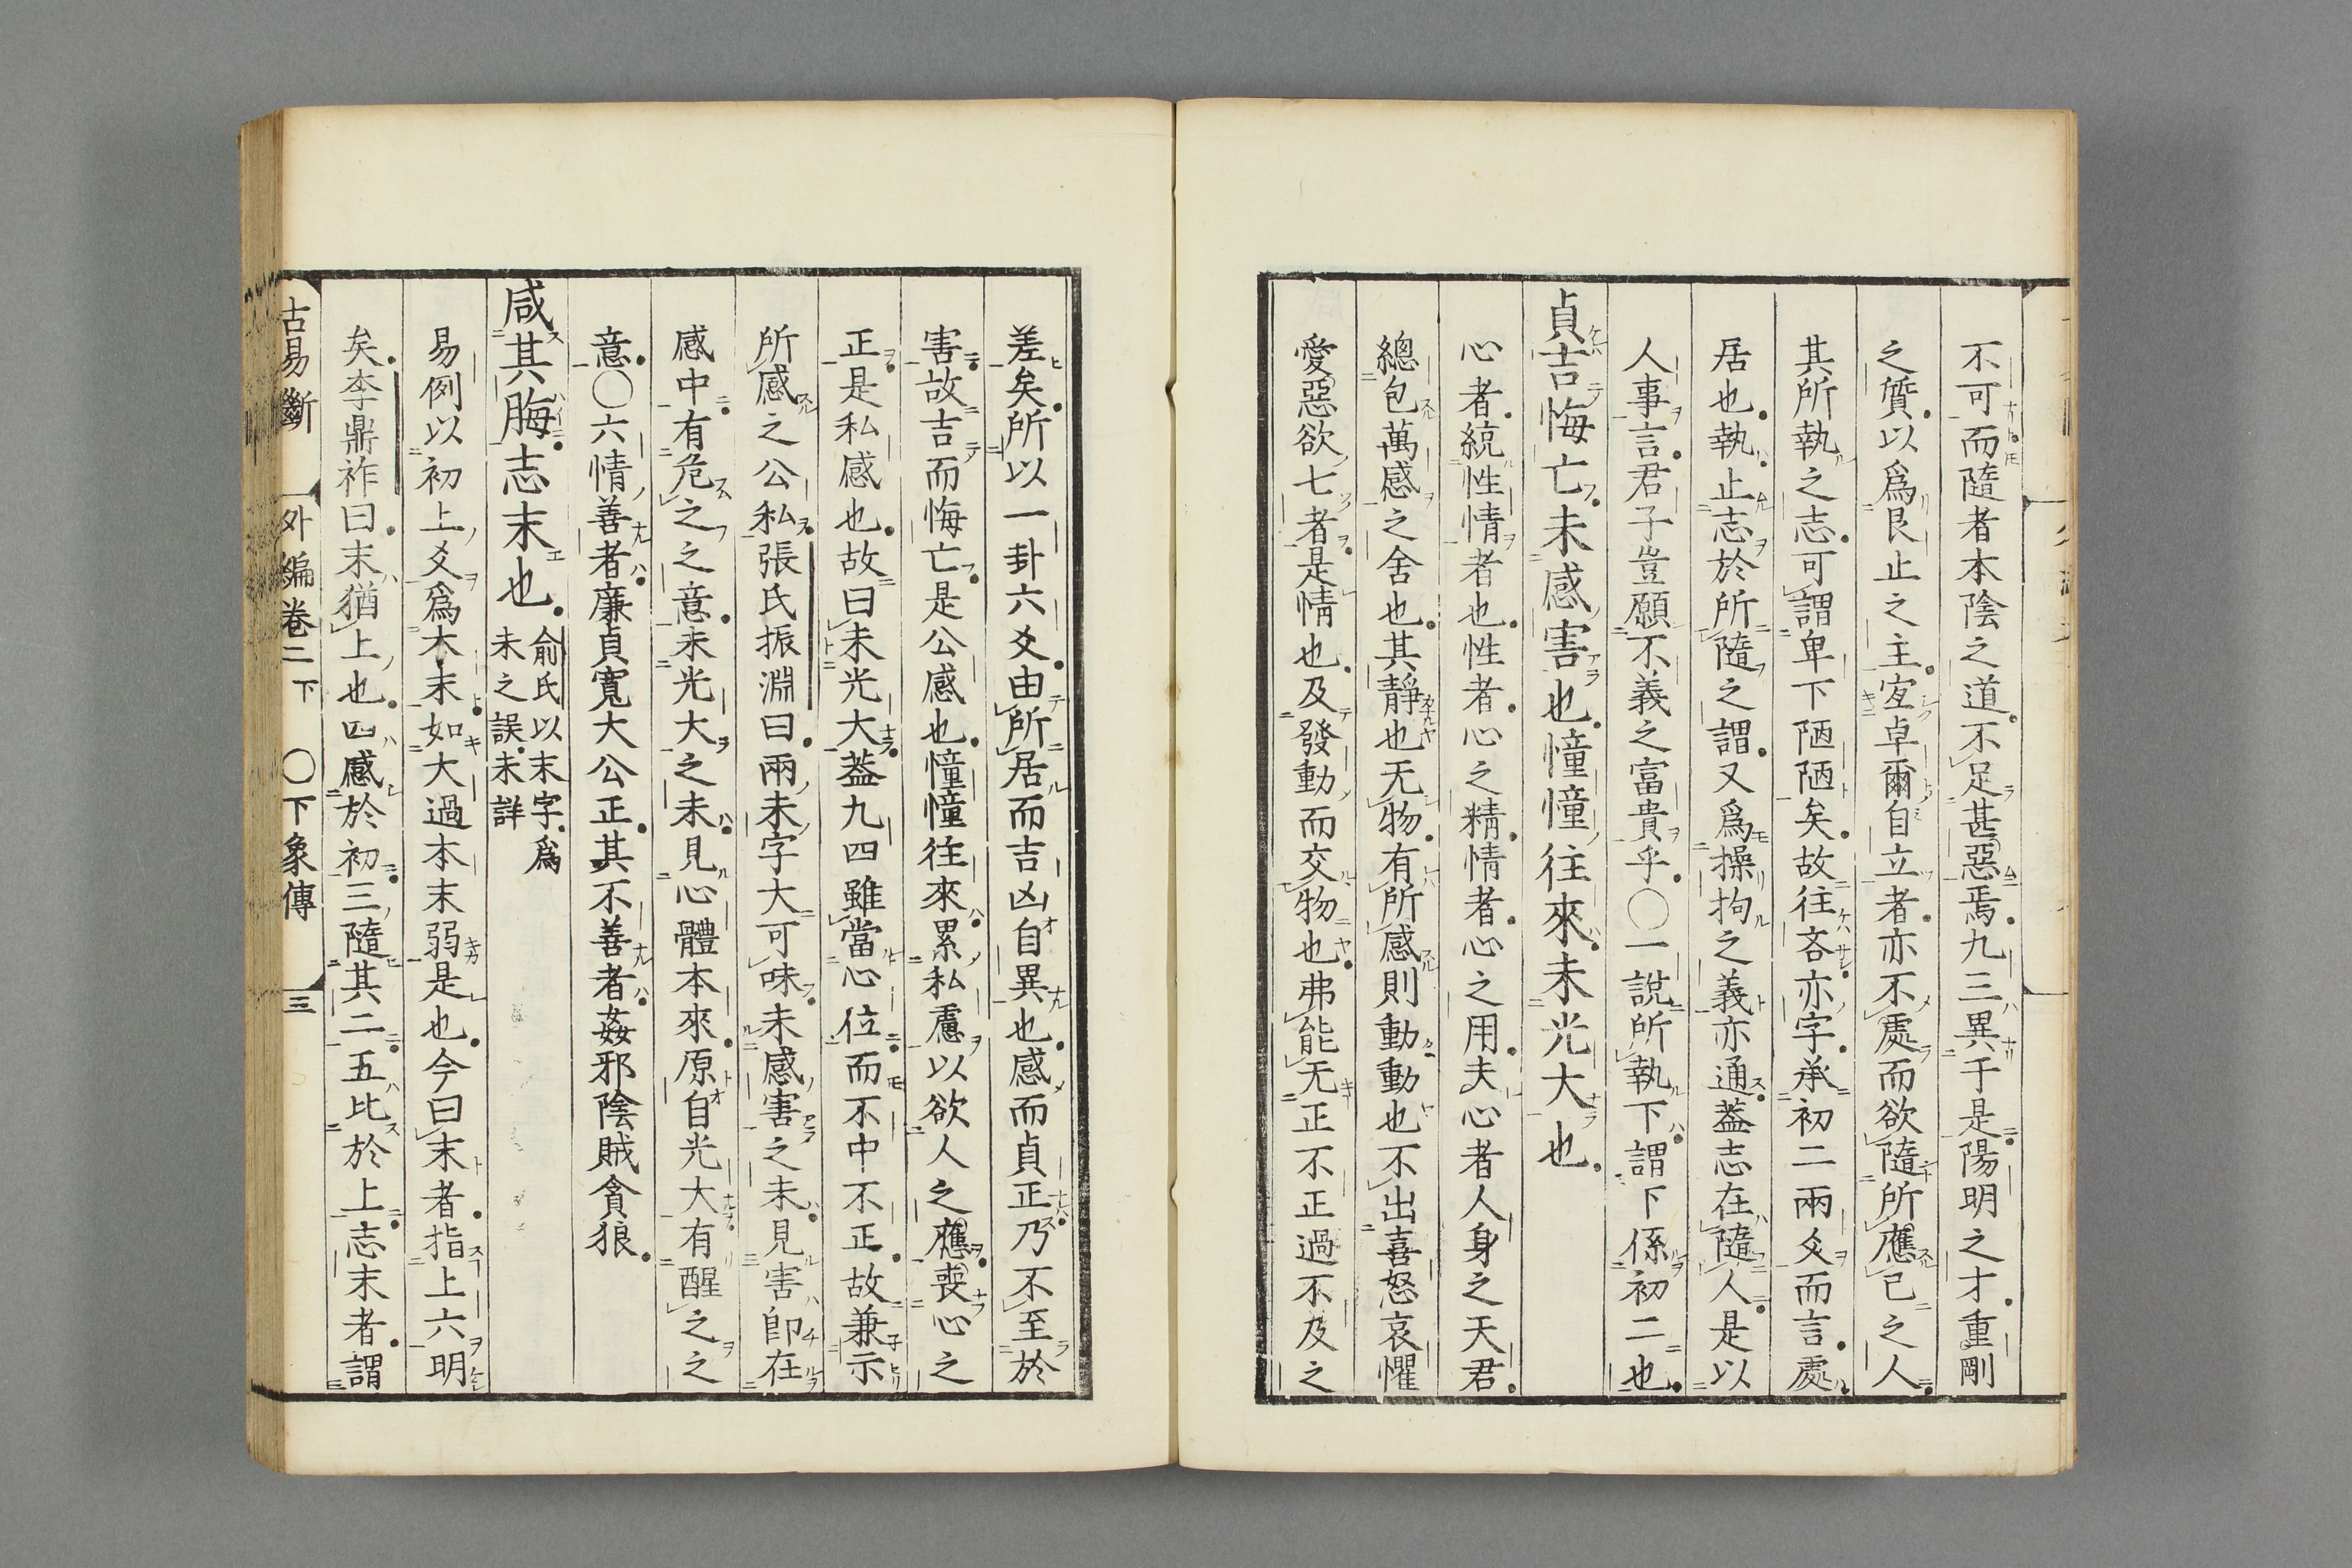 不可而隨者本陰之道不足甚惡焉九三異于是陽明之才重剛
之質以爲艮止之主宜卓爾自立者亦不處而欲隨所應己之人
其所執之志可謂卑下陋陋矣故往吝亦字承初二兩爻而言處
居也執止志於所隨之謂又爲操拘之義亦通葢志在隨人是以
人事言君子豈願不義之富貴乎〇一說所執下謂下係初二也
貞吉悔亡未感害也憧憧往來未光大也
心者統性情者也性者心之精情者心之用夫心者人身之天君
總包萬感之舍也其靜也无物有所感則動動也不出喜怒哀懼
愛惡欲七者是情也及發動而交物也弗能无正不正過不及之
差矣所以一卦六爻由所居而吉凶自異也感而貞正乃不至於
害故吉而悔亡是公感也憧憧往來累私慮以欲人之應喪心之
正是私感也故曰未光大葢九四雖當心位而不中不正故兼示
所感之公私張氏振淵曰兩未字大可味未感害之未見害卽在
感中有危之之意未光大之未見心體本來原自光大有醒之之
意〇六情善者廉貞寬大公正其不善者姦邪陰賊貪狼
咸其脢志末也俞氏以末字爲
未之誤未詳
易例以初上爻爲本末如大過本末弱是也今曰末者指上六明
矣李鼎祚曰末猶上也四感於初三隨其二五比於上志末者謂
古易斷 外編卷二下 〇下象傳 三